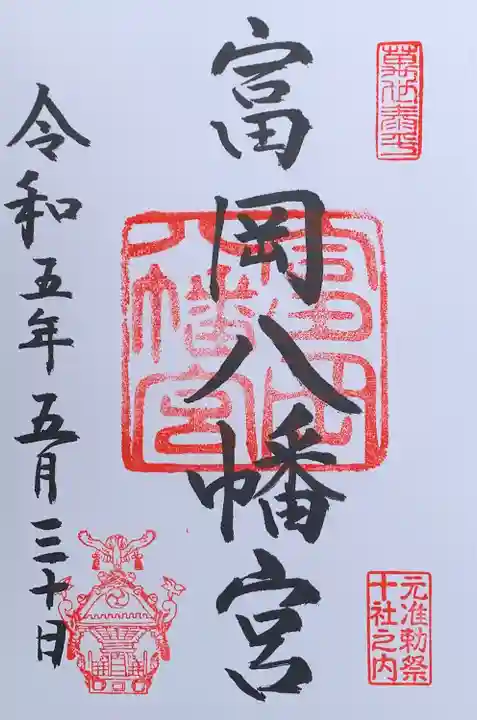 萬世泰平
富岡八幡宮
富岡
八幡宮
元准勅祭
十社之内
令和五年五月三十日